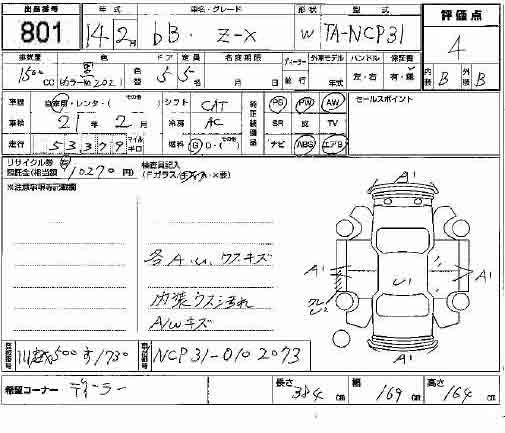 出品番号 年式 車名・グレード 形状 型式 評価点
801 14年2月 bB・Z-X W TA-NCP31 4
排気量 色 ドア 定員 名変期限 ディーラー 外車モデル ハンドル 保証書
1500cc 黒 (カラーNo. 202) 色替 5 5 並行 年式 左・右 有・無 内装 B 外装 B
車歴 自家用・レンタ・(その他) シフト CAT 純正装備品 PS PW AW セールスポイント
車検 21年2月 冷房 AC SR 皮 TV
走行 53379 マイル キロ 燃料 G D・(その他) ナビ ABS エアB
リサイクル券 預託金(相当額) 10270円) 検査員記入
※注意事項等記載欄 (Fガラス
A1
各A.U. ウスキズ
A1 U1 A1
内装ウスヨゴレ
AWキズ
A1
川越500す1730 NCP31-0102073
希望コーナー ディーラー 長さ 384cm 幅 169cm 高さ 164cm